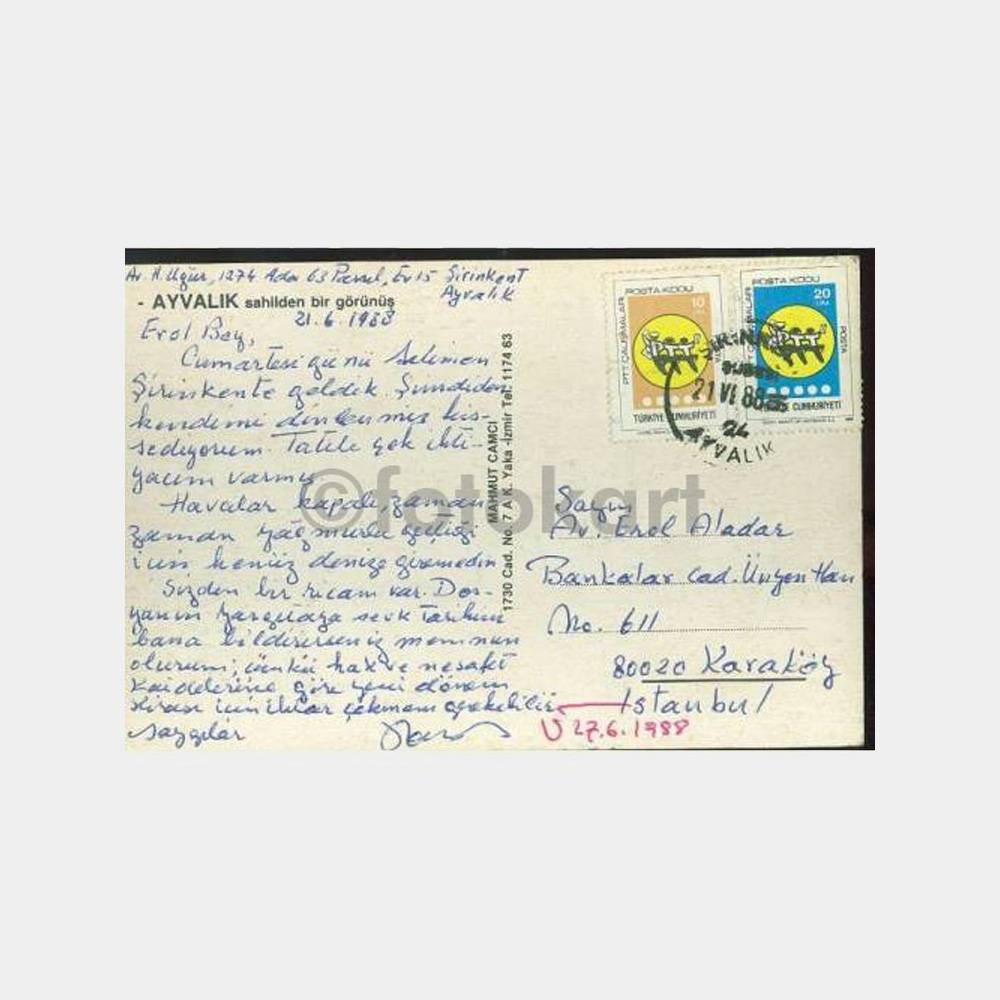 Av. H. Uğur, 1274 Ada 63 Parsel, Ev 15 Şirinkent
Ayvalık
- AYVALIK sahilden bir görünüş
21.6.1988
Erol Bey,
Cumartesi günü
Şirinkente geldik. Şimdiden
kendimi dinlenmiş his-
sediyorum. Tatile çok ihti-
yacım varmış
Havalar kapalı, zaman
zaman yağmurlu geçtiği
için henüz denize giremedim
Sizden bir ricam var. Dos-
yanın Yargıtaya sevk tarihini
bana bildirirseniz memnun
olurum; çünkü hak ve nesafet
kaidelerine göre yeni dönem
kirası için ihtar çekmem gerekebilir
saygılar
MAHMUT CAMCI
1730 Cad. No. 7 A K. Yaka -İzmir Tel: 1174 63
POSTA KODU
10
LİRA
PTT ÇALIŞMALAR
TÜRKİYE CUMHURİYETİ
POSTA KODU
20
LİRA
POSTA
CUMHURİYETİ
21 VI 88
24
AYVALIK
©fotokart
Sayın
Av. Erol Aladar
Bankalar cad. Ünyon Han
No. 611
80020 Karaköy
İstanbul
27.6.1988